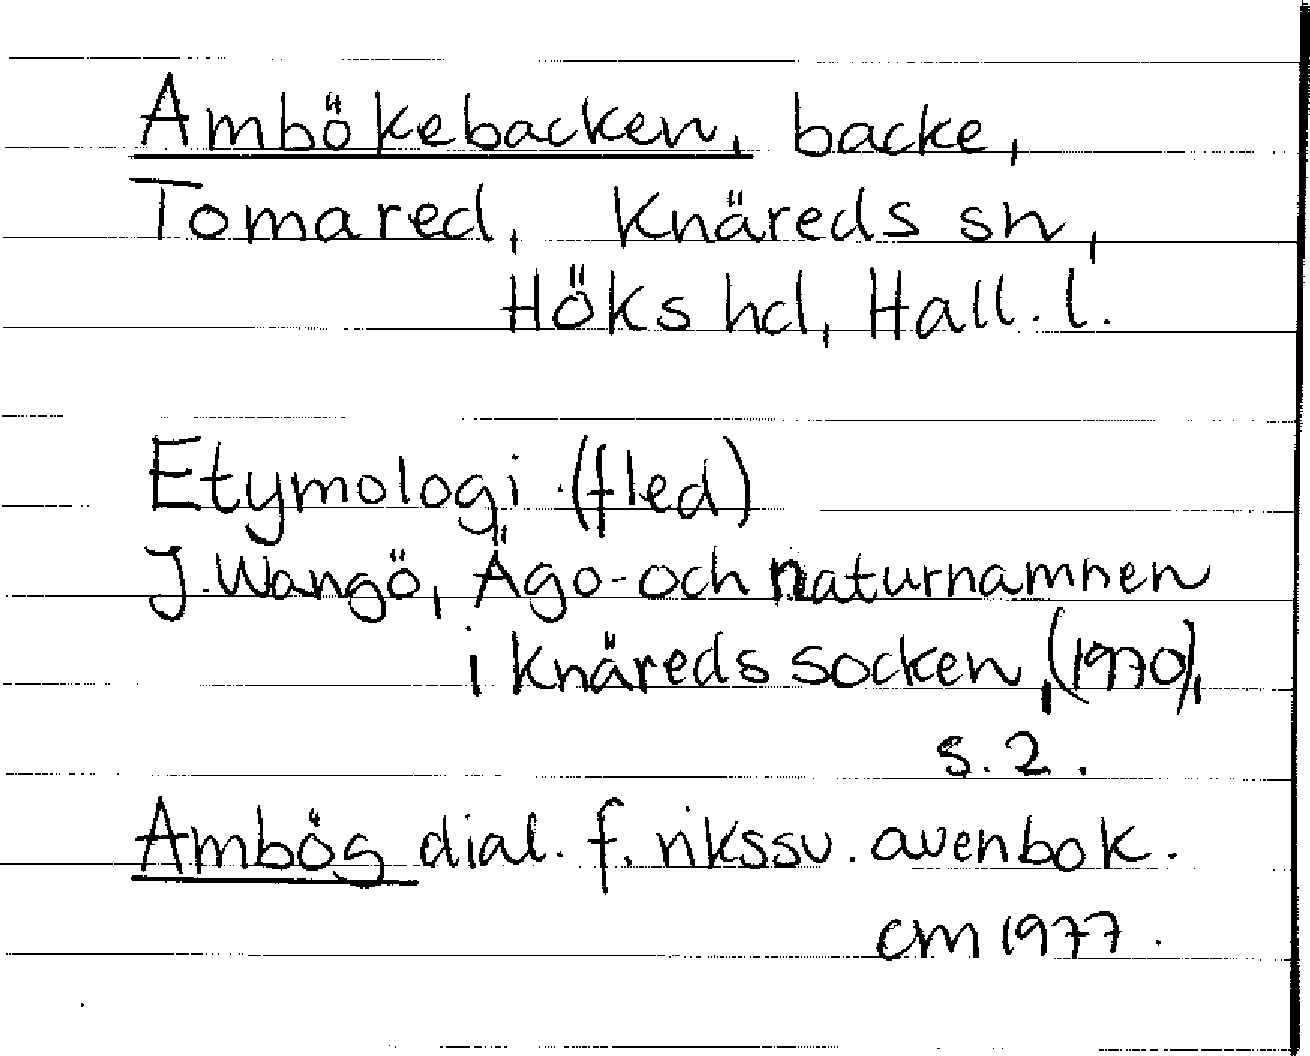 Ambökebacken, backe,
Tomared, Knäreds sn,
Höks hd, Hall. l.
Etymologi (fled)
J. Wangö, Ägo- och naturnamnen
i Knäreds socken, (1970),
s. 2.
Ambög dial. f. rikssv. avenbok.
cm 1977.